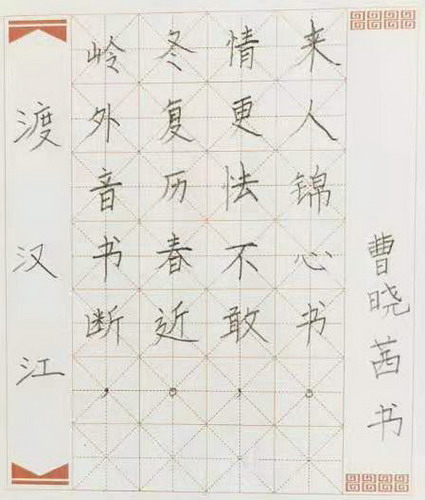 渡汉江
岭外音书断，
冬复历春近。
情更怯不敢，
来人锦心书。
曹晓茜书